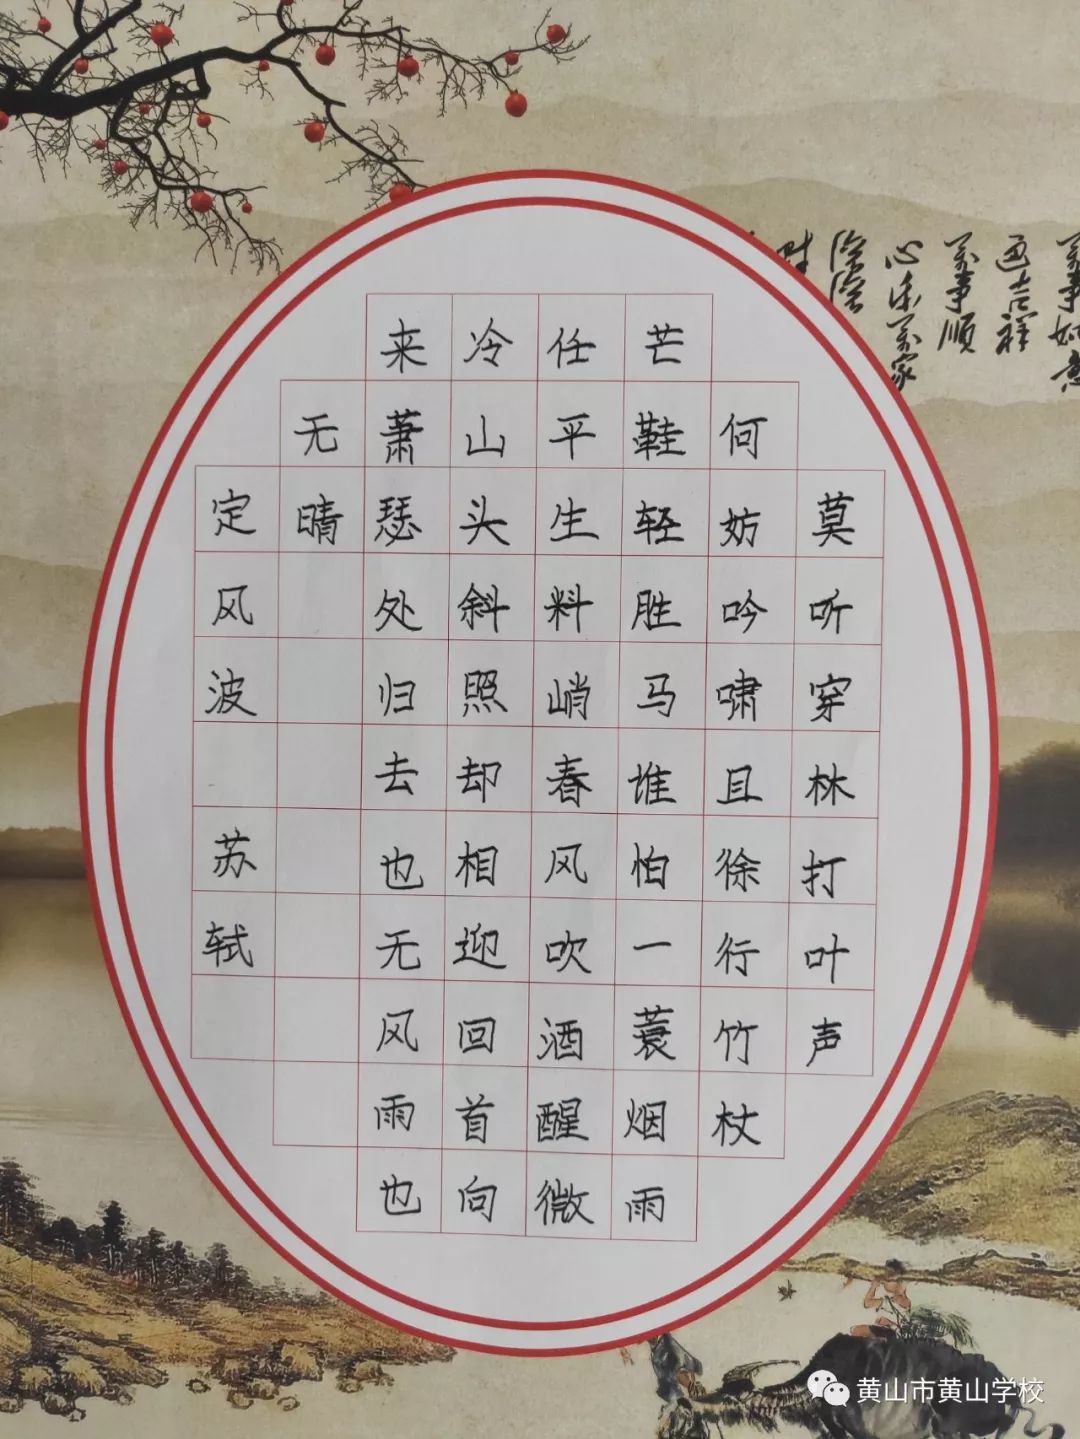 莫听穿林打叶声
何妨吟啸且徐行竹杖
芒鞋轻胜马谁怕一蓑烟雨
任平生料峭春风吹酒醒微
冷山头斜照却相迎回首向
来萧瑟处归去也无风雨也
无晴
定风波 苏轼
事如意
吉祥
事顺
黄山市黄山学校